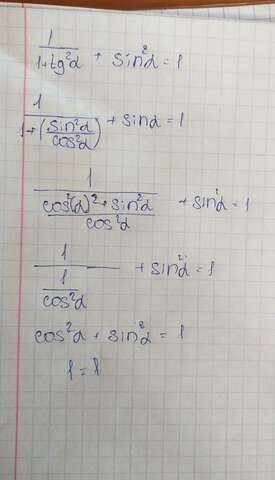 1/(1+tg²α) + sin²α = 1
1/(1+(sin²α/cos²α)) + sinα = 1
1/((cos²(α)² + sin²α)/cos²α) + sin²α = 1
1/(1/cos²α) + sin²α = 1
cos²α + sin²α = 1
1 = 1